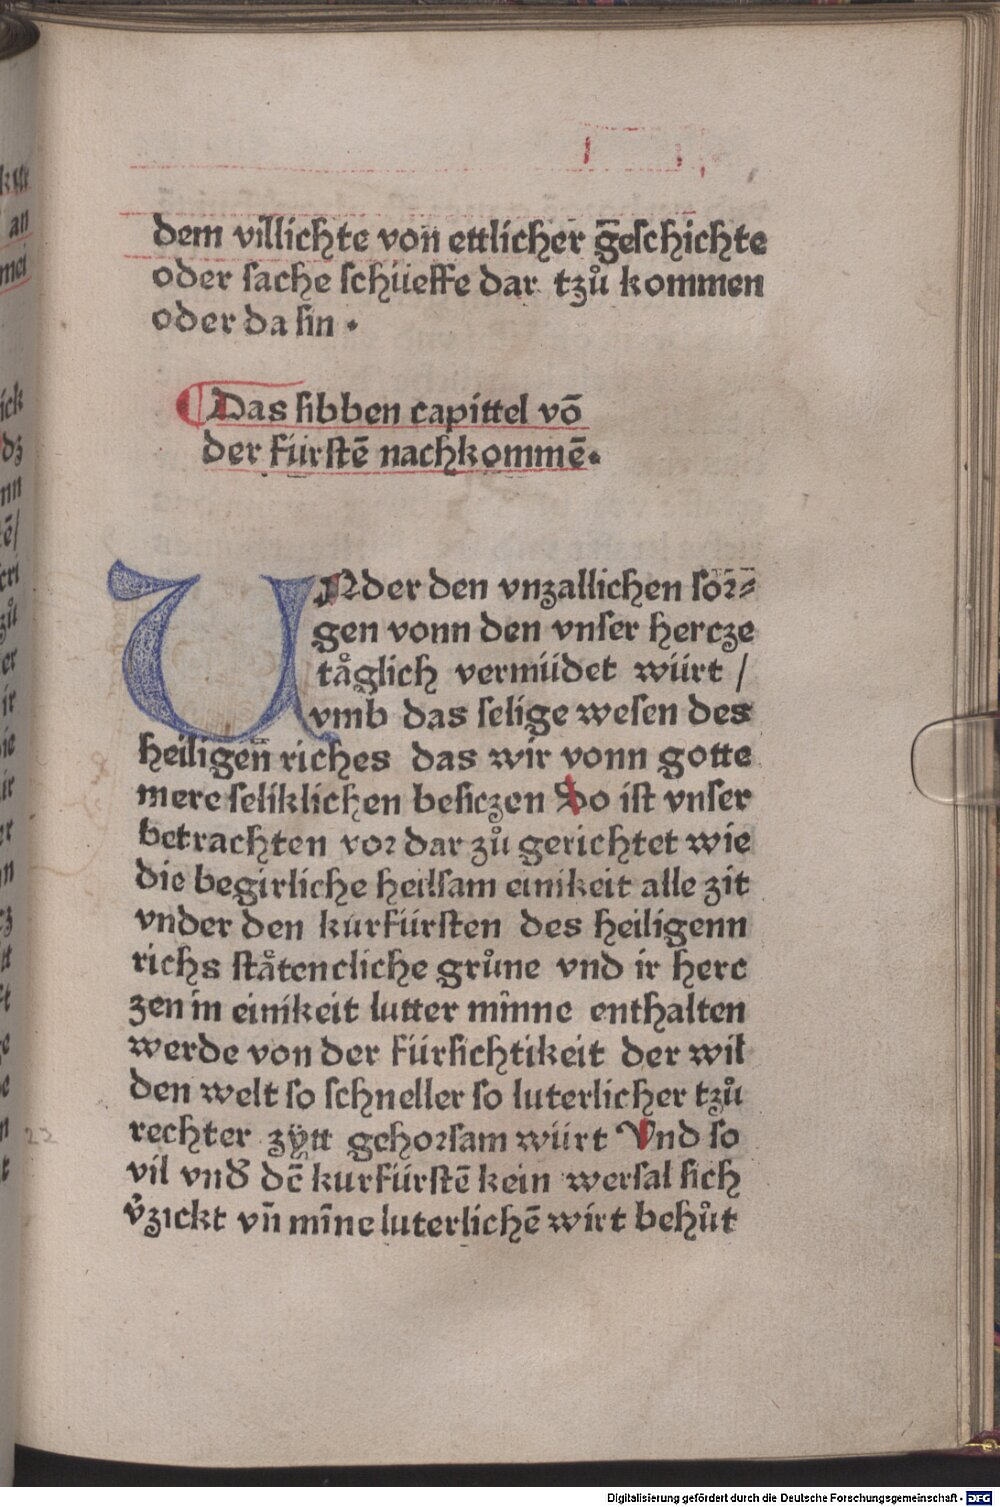 dem villichte von ettlicher geſchichte
oder ſache ſchüeffe dar tzů kommen
oder da ſin .
Das ſibben capittel vō
der fürſtē nachkommē.
UNder den vnzallichen ſor⸗
gen vonn den vnſer hercze
tåglich vermüdet würt /
vmb das ſelige weſen des
heiligen riches das wir vonn gotte
mere ſeliklichen beſiczen So iſt vnſer
betrachten vor dar zů gerichtet wie
die begirliche heilſam einikeit alle zit
vnder den kurfürſten des heiligenn
richs ſtåtencliche grůne vnd ir herc
zen in einikeit lutter minne enthalten
werde von der fürſichtikeit der wil
den welt ſo ſchneller ſo luterlicher tzů
rechter zÿtt gehorſam würt Vnd ſo
vil vnd' dē kurfürſtē kein werſal ſich
v'zickt vn̄ mīne luterlichē wirt behůt
22
Digitalisierung gefördert durch die Deutsche Forschungsgemeinschaft - DFG